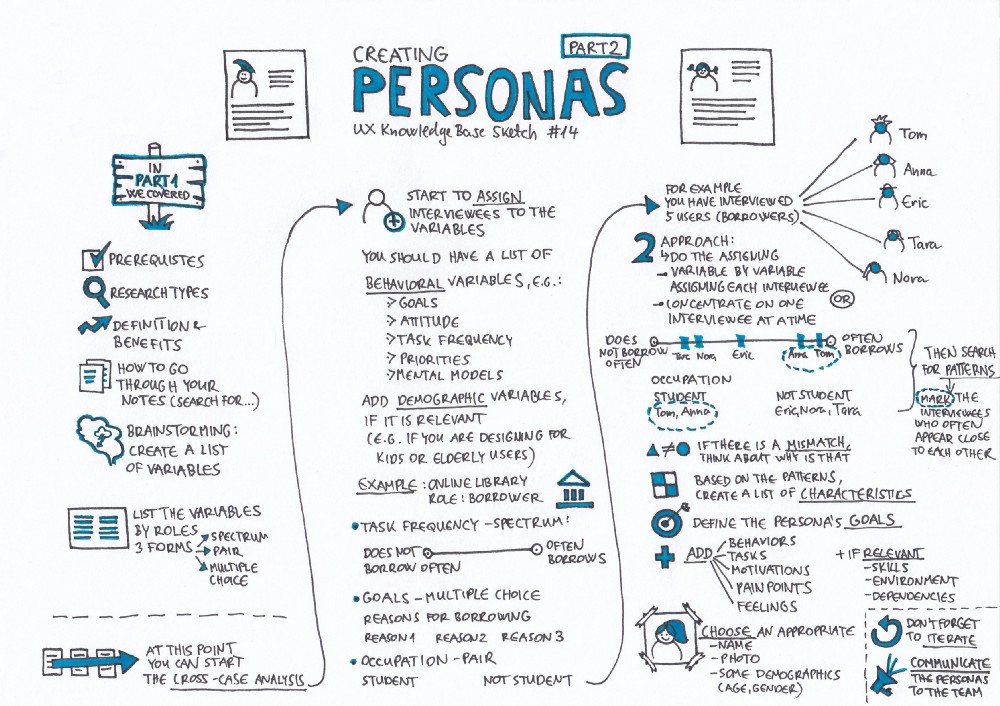 CREATING
PART2
PERSONAS
UX Knowledge Base Sketch #14
IN
PART1
WE COVERED
PREREQUISTES
RESEARCH TYPES
DEFINITION &
BENEFITS
HOW TO GO
THROUGH YOUR
NOTES (SEARCH FOR...)
BRAINSTORMING:
CREATE A LIST
OF VARIABLES
LIST THE VARIABLES
BY ROLES
3 FORMS
SPECTRUM
PAIR
MULTIPLE
CHOICE
AT THIS POINT
YOU CAN START
THE CROSS-CASE ANALYSIS
START TO ASSIGN
INTERVIEWEES TO THE
VARIABLES
YOU SHOULD HAVE A LIST OF
BEHAVIORAL VARIABLES, E.G.:
> GOALS
> ATTITUDE
> TASK FREQUENCY
> PRIORITIES
> MENTAL MODELS
ADD DEMOGRAPHIC VARIABLES,
IF IT IS RELEVANT
(E.G. IF YOU ARE DESIGNING FOR
KIDS OR ELDERLY USERS)
EXAMPLE: ONLINE LIBRARY
ROLE: BORROWER
• TASK FREQUENCY - SPECTRUM:
DOES NOT
BORROW OFTEN
OFTEN
BORROWS
• GOALS - MULTIPLE CHOICE
REASONS FOR BORROWING
REASON1 REASON2 REASON3
• OCCUPATION - PAIR
STUDENT NOT STUDENT
FOR EXAMPLE
YOU HAVE INTERVIEWED
5 USERS (BORROWERS)
Tom
Anna
Eric
Tara
Nora
2 APPROACH:
DO THE ASSIGNING
- VARIABLE BY VARIABLE
ASSIGNING EACH INTERVIEWEE
OR
- CONCENTRATE ON ONE
INTERVIEWEE AT A TIME
DOES
NOT BORROW
OFTEN
Nora Eric Anna Tom
OFTEN
BORROWS
OCCUPATION
STUDENT
Tom, Anna
NOT STUDENT
Eric, Nora, Tara
THEN SEARCH
FOR PATTERNS
MARK THE
INTERVIEWEES
WHO OFTEN
APPEAR CLOSE
TO EACH OTHER
IF THERE IS A MISMATCH,
THINK ABOUT WHY IS THAT
BASED ON THE PATTERNS,
CREATE A LIST OF CHARACTERISTICS
DEFINE THE PERSONA'S GOALS
+ ADD
BEHAVIORS
TASKS
MOTIVATIONS
PAIN POINTS
FEELINGS
+ IF RELEVANT
- SKILLS
- ENVIRONMENT
- DEPENDENCIES
CHOOSE AN APPROPRIATE
- NAME
- PHOTO
- SOME DEMOGRAPHICS
(AGE, GENDER)
DON'T FORGET
TO ITERATE
COMMUNICATE
THE PERSONAS
TO THE TEAM